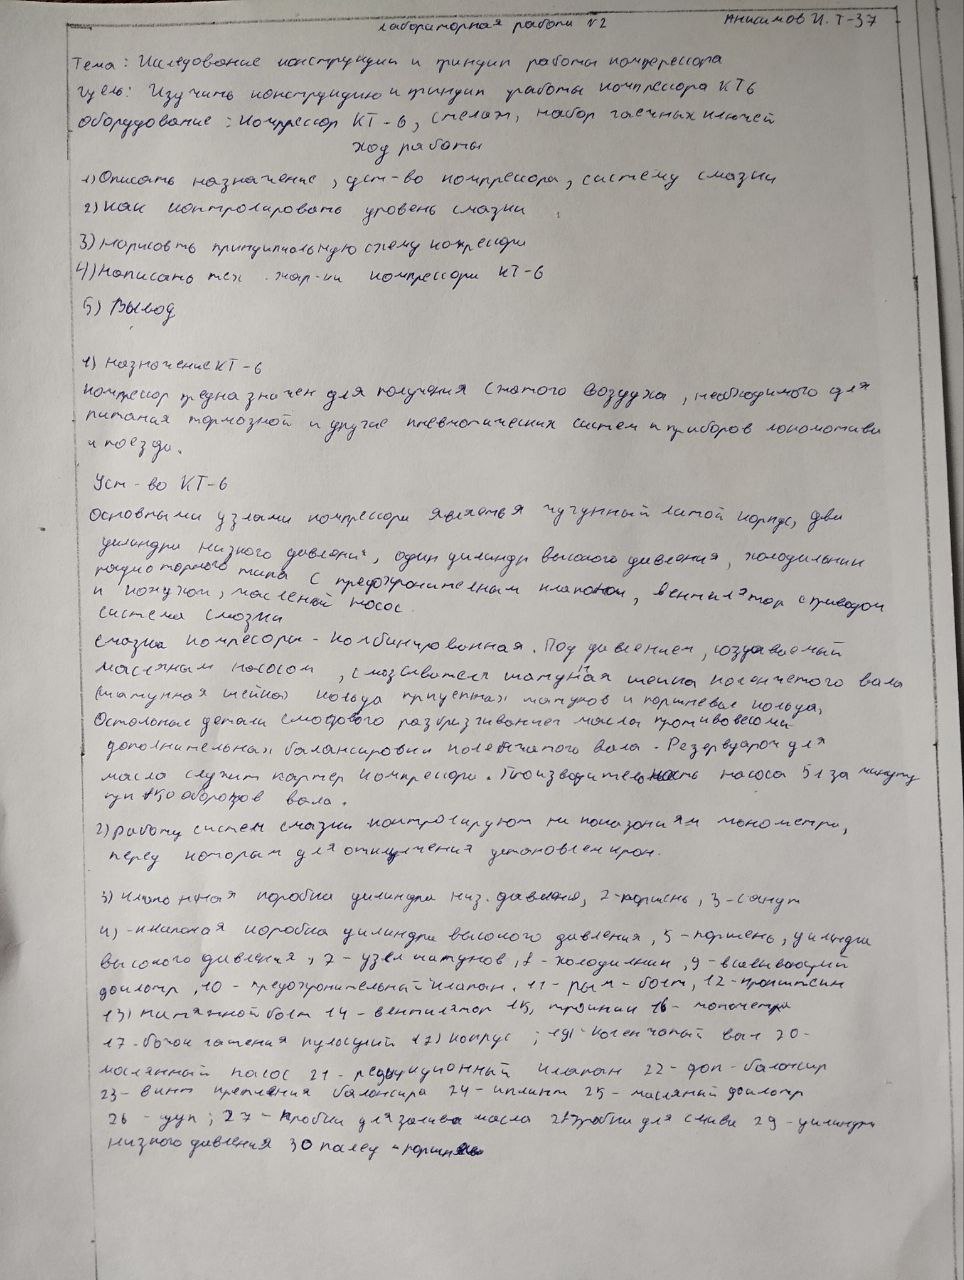 Лабораторная работа №2 Анисимов И. Т-37
Тема: Иследование конструкции и принцип работы компрессора
Цель: Изучить конструкцию и принцип работы компрессора КТ6
Оборудование: Компрессор КТ-6, стелаж, набор гаечных ключей
Ход работы
1) Описать назначение, уст-во компрессора, систему смазки
2) Как контролировать уровень смазки
3) Нарисовть принципиальную схему компрессора
4) Написать тех. хар-ки компрессора КТ-6
5) Вывод
1) Назначение КТ-6
Компрессор предназначен для получения сжатого воздуха, необходимого для
питания тормозной и другие пневматических систем и приборов локомотива
и поезда.
Уст-во КТ-6
Основными узлами компрессора является чугунный литой корпус, два
цилиндра низкого давления, один цилиндр высокого давления, холодильник
радиаторного типа с предохранительным клапаном, вентилятор с приводом
и кожухом, масленый насос.
система смазки
Смазка компресора - комбинированная. Под давлением, создаваемый
масляным насосом, смазывается шатунная шейка коленчетого вала
(шатунная шейка) кольца прицепных шатунов и поршневые кольца,
Остальные детали разбрызгивает масла противовесами
дополнительных балансировки коленчатого вала. Резервуаром для
масла служит картер компрессора. Производительность насоса 5 л за минуту
при 850 оборотов вала.
2) работу систем смазки контролируют по показаниям манометра,
перед которым для отключения установлен кран.
3) Клапанная коробка цилиндра низ. давления, 2-поршень, 3-
4) -клапаная коробка цилиндра высокого давления, 5-поршень, цилиндра
высокого давления, 7-узел шатунов, 8-холодильник, 9-всасывающий
10-предохранительный клапан, 11-рым-болт, 12-кронштейн
13) натяжной болт 14-вентилятор 15, тройник 16-монометра
17-бачок гашения пульсаций 18) корпус; 19)-коленчатый вал 20-
маслянный насос 21-редукционный клапан 22-доп-балансир
23-винт крепления балансира 24-шплинт 25-масляный
26-щуп; 27-пробки для залива масла 28-пробки для слива 29-цилиндр
низкого давления 30 палец